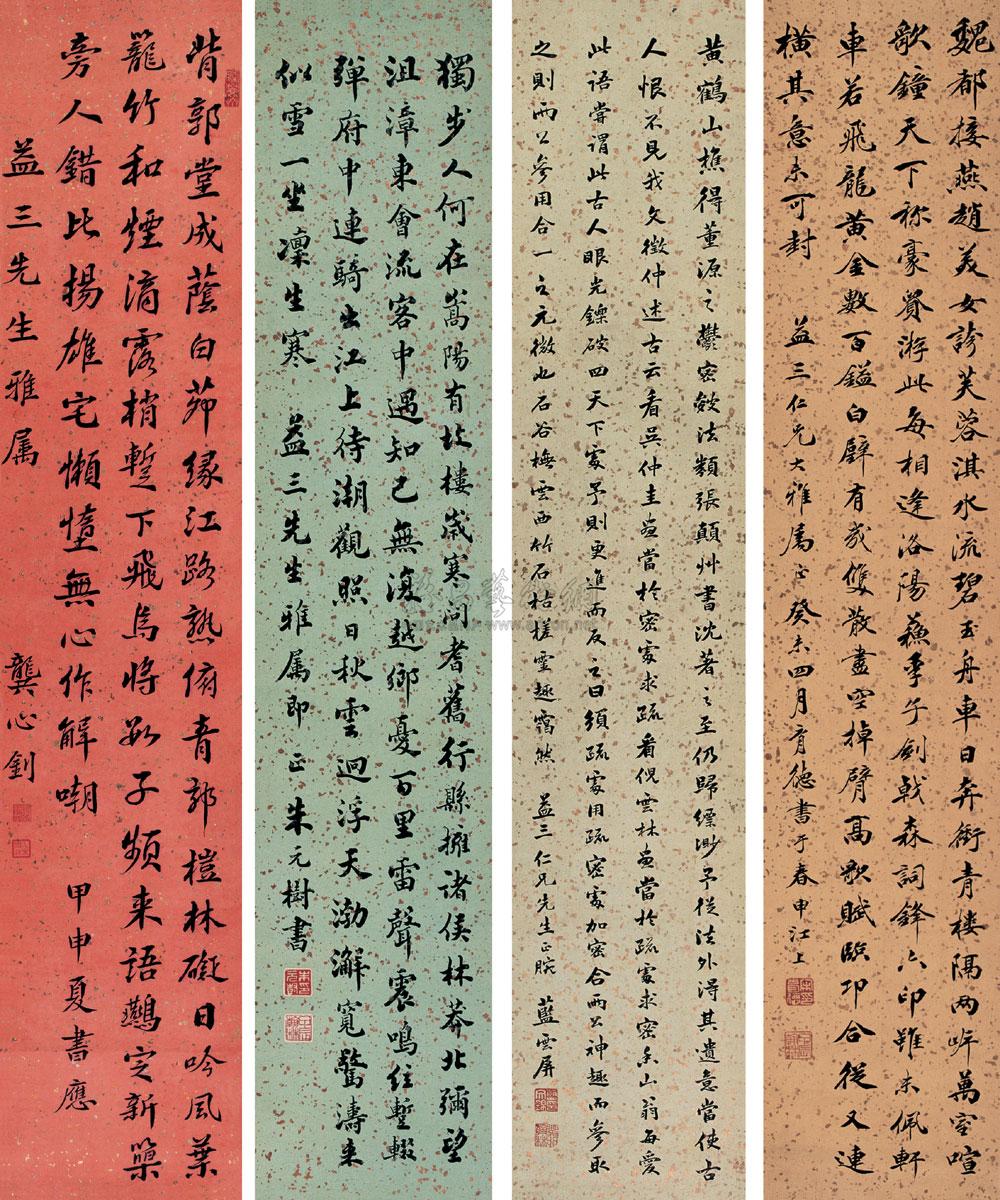 魏都接燕趙美女誇芙蓉淇水流碧玉舟車日奔衝青樓隔兩岸萬室喧
歌鐘天下称豪貴游此每相逢洛陽蘇季子劍戟森詞鋒六印雖未佩軒
車若飛龍黃金數百鎰白璧有幾雙散盡空掉臂高歌賦臨邛合從又連
橫其意未可封 益三仁兄大雅属正癸未四月育德書于春申江上
黃鶴山樵得董源之鬱密皴法類張顛艸書沈著之至仍歸縹渺予從法外得其遺意當使古
人恨不見我文徵仲述古云看吳仲圭畫當於密處求疏看倪雲林畫當於疏處求密香山翁每愛
此語嘗謂此古人眼光鑠破四天下處予則更進而反之曰須疏處用疏密處加密合兩公神趣而參取
之則兩公參用合一之元微也石谷橅雲西竹石枯槎靈趣靄然 益三仁兄先生正腕 藍雲屏
獨步人何在嵩陽有故樓歲寒問耆舊行縣擁諸侯林莽北彌望
沮漳東會流客中遇知己無復越鄉憂百里雷聲震鳴絃暫輟
彈府中連騎出江上待潮觀照日秋雲迥浮天渤澥寬驚濤来
似雪一坐凜生寒 益三先生雅属即正朱元樹書
背郭堂成蔭白茆緣江路熟俯青郊榿林礙日吟風葉
籠竹和煙滴露梢暫下飛烏將數子頻来語鷰定新巢
旁人錯比揚雄宅懶惰無心作解嘲 甲申夏書應
益三先生雅属 龔心釗